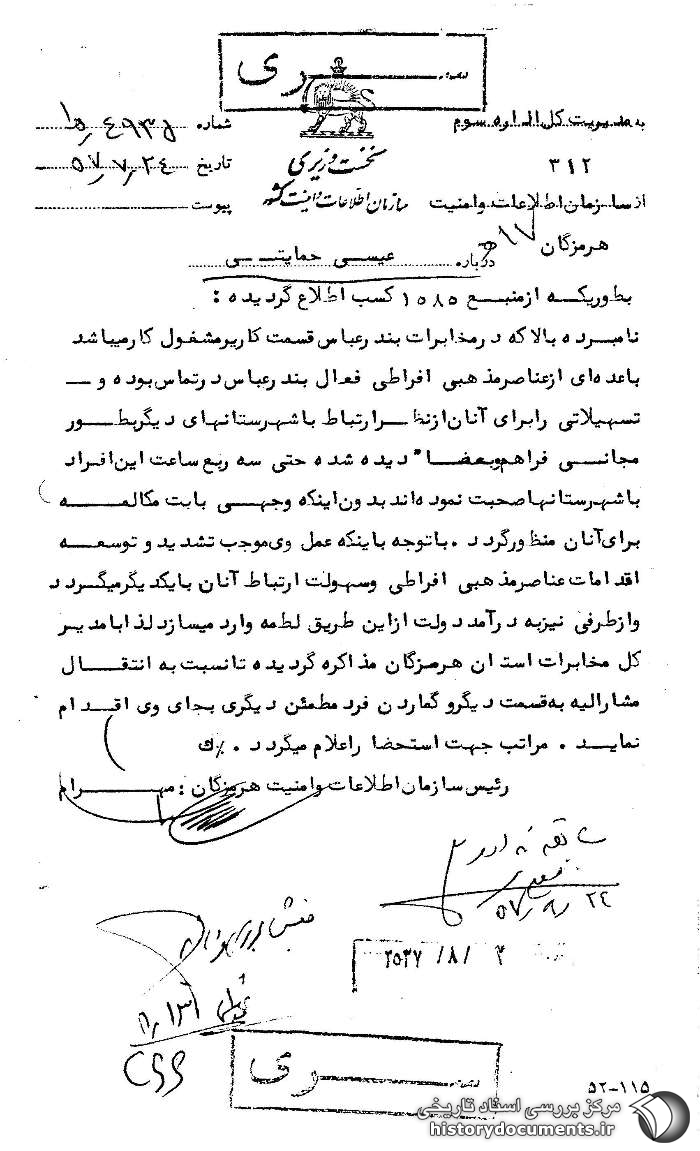 ســری
به مدیریت کل اداره سوم
۳۱۲
از سازمان اطلاعات وامنیت
هرمزگان ۱۷ه
نخست وزیری
سازمان اطلاعات و امنیت کشور
شماره
تاریخ ۵۷/۷/۲۴
پیوست
درباره عیسی حمایتــی
بطوریکـه ازمنبـع ۱۰۸۵ کسب اطلاع گردیده :
نامبـرده بالا که درمخابرات بندرعباس قسمت کاریرمشغول کارمیباشد
باعده‌ای ازعناصرمذهبی افراطی فعال بندرعباس درتماس بوده و ــ
تسهیلاتی رابرای آنان ازنظـرارتباط باشهرستانهای دیگربطــور
مجانــی فراهم‌وبعضـا" دیده شده حتی سه ربع ساعت این‌افراد
باشهرستانهاصحبت نموده‌اند بدون‌اینکه وجهــی بابت مکالمــه
برای‌آنان منظورگردد . باتوجه باینکه عمل وی‌موجب تشدید و توسعــه
اقدامات عناصرمذهبی افراطی وسهولت ارتباط آنان بایکدیگرمیگردد
وازطرفی نیزبه درآمددولت ازاین طریق لطمه وارد میسازد لذا بامدیـر
کل مخابرات استان هرمزگان مذاکره گردیده تانسبت به انتقــال
مشارالیه به‌قسمت دیگروگماردن فرد مطمئن دیگری بجای وی اقــدام
نمایــد . مراتب جهت استحضا راعلام میگردد . %ك
رئیس سازمان اطلاعات وامنیت هرمزگان : مهــرام
سابقه ندارد
۲۵۳۷ /۸/ ۴
ســری
۵۲-۱۱۵
مرکز بررسی اسناد تاریخی
historydocuments.ir